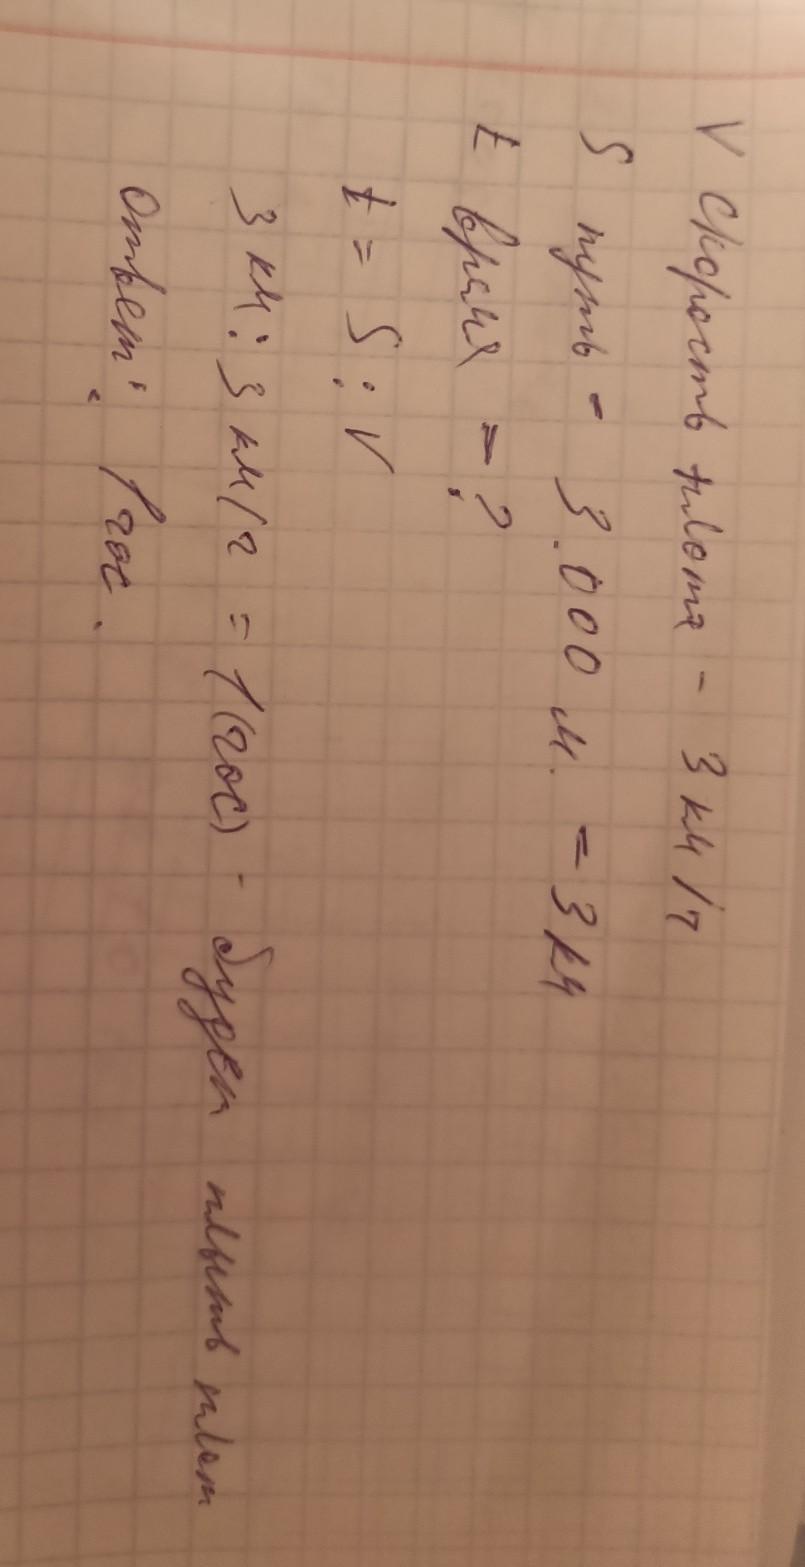 V скорость плота - 3 км/ч
S путь - 3.000 м. = 3 км
t время = ?
t = S : V
3 км : 3 км/ч = 1 (час) - будет плыть плот
Ответ: 1 час.